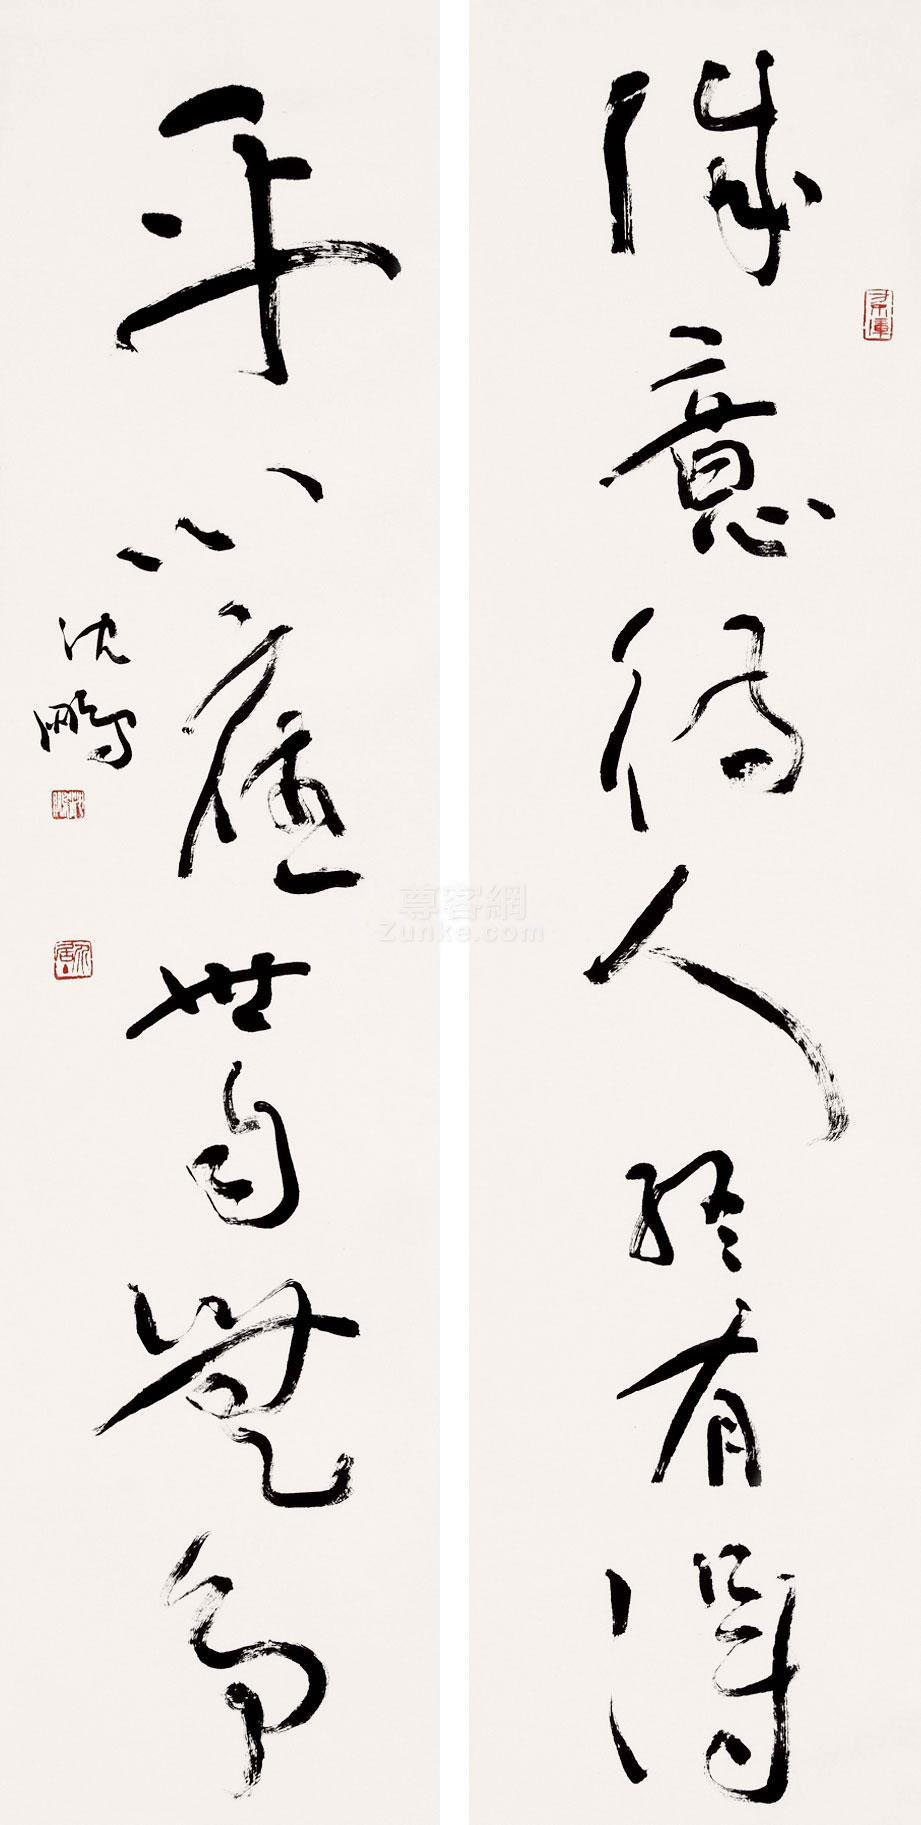 诚意待人终有得
平心应世自无争
沈鹏
尊客網
Zunke.com